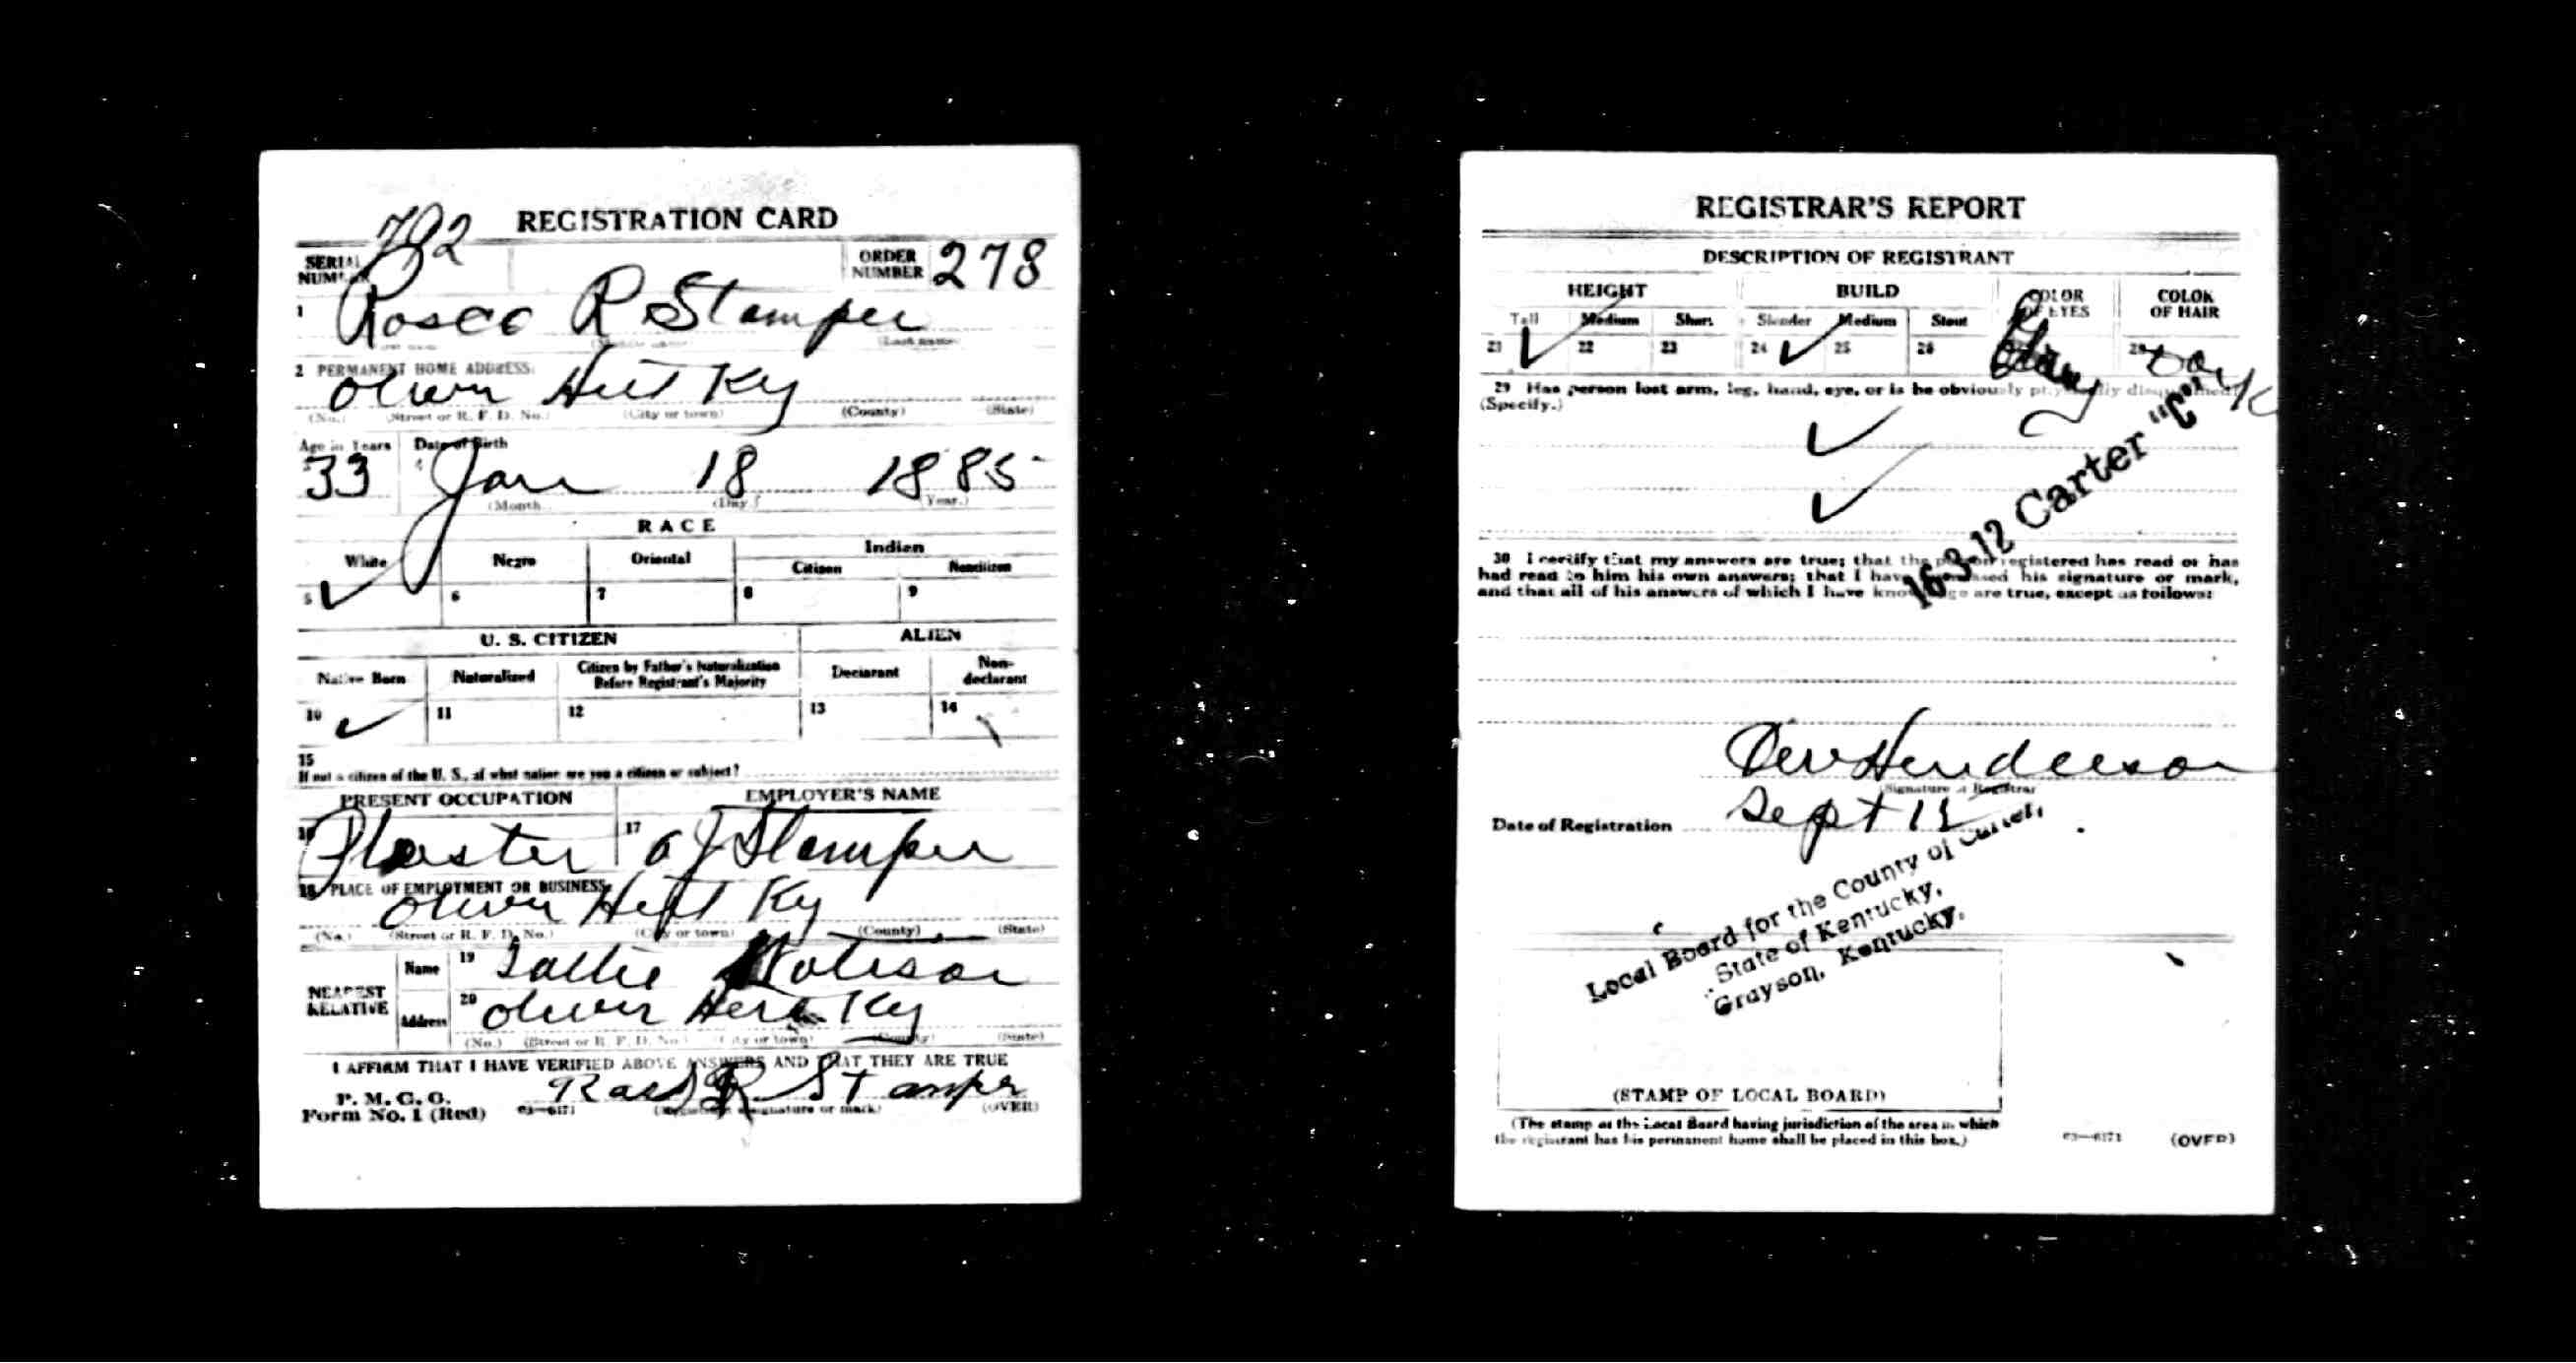 REGISTRATION CARD
SERIAL NUMBER 792
ORDER NUMBER 278
1 Rosco R Stamper
(Last name)
2 PERMANENT HOME ADDRESS:
Oliver Hill Ky
(No.) (Street or R. F. D. No.) (City or town) (County) (State)
Age in Years Date of Birth
33 4 Jan 18 1885
(Month.) (Day.) (Year.)
RACE
White Negro Oriental Indian
Citizen Noncitizen
5 ✓ 6 7 8 9
U. S. CITIZEN ALIEN
Native Born Naturalized Citizen by Father's Naturalization Before Registrant's Majority Declarant Non-declarant
10 ✓ 11 12 13 14
15
If not a citizen of the U. S., of what nation are you a citizen or subject?
PRESENT OCCUPATION EMPLOYER'S NAME
16 Plaster 17 Stamper
18 PLACE OF EMPLOYMENT OR BUSINESS:
Oliver Hill Ky
(No.) (Street or R. F. D. No.) (City or town) (County) (State)
NEAREST RELATIVE
Name 19 Sallie
Address 20 Oliver Hill Ky
(No.) (Street or R. F. D. No.) (City or town) (County) (State)
I AFFIRM THAT I HAVE VERIFIED ABOVE ANSWERS AND THAT THEY ARE TRUE
P. M. G. O.
Form No. 1 (Red) 03—6171 R Stamper
(Registrant's signature or mark) (OVER)
REGISTRAR'S REPORT
DESCRIPTION OF REGISTRANT
HEIGHT BUILD COLOR OF EYES COLOR OF HAIR
Tall Medium Short Slender Medium Stout
21 ✓ 22 23 24 ✓ 25 26 Gray 28 Dark
29 Has person lost arm, leg, hand, eye, or is he obviously physically disqualified?
(Specify.)
✓
✓
16-3-12 Carter "C"
30 I certify that my answers are true; that the person registered has read or has
had read to him his own answers; that I have witnessed his signature or mark,
and that all of his answers of which I have knowledge are true, except as follows:
Henderson
(Signature of Registrar)
Date of Registration Sept 12
Local Board for the County of Carter,
State of Kentucky,
Grayson, Kentucky.
(STAMP OF LOCAL BOARD)
(The stamp of the Local Board having jurisdiction of the area in which
the registrant has his permanent home shall be placed in this box.)
03—6171 (OVER)